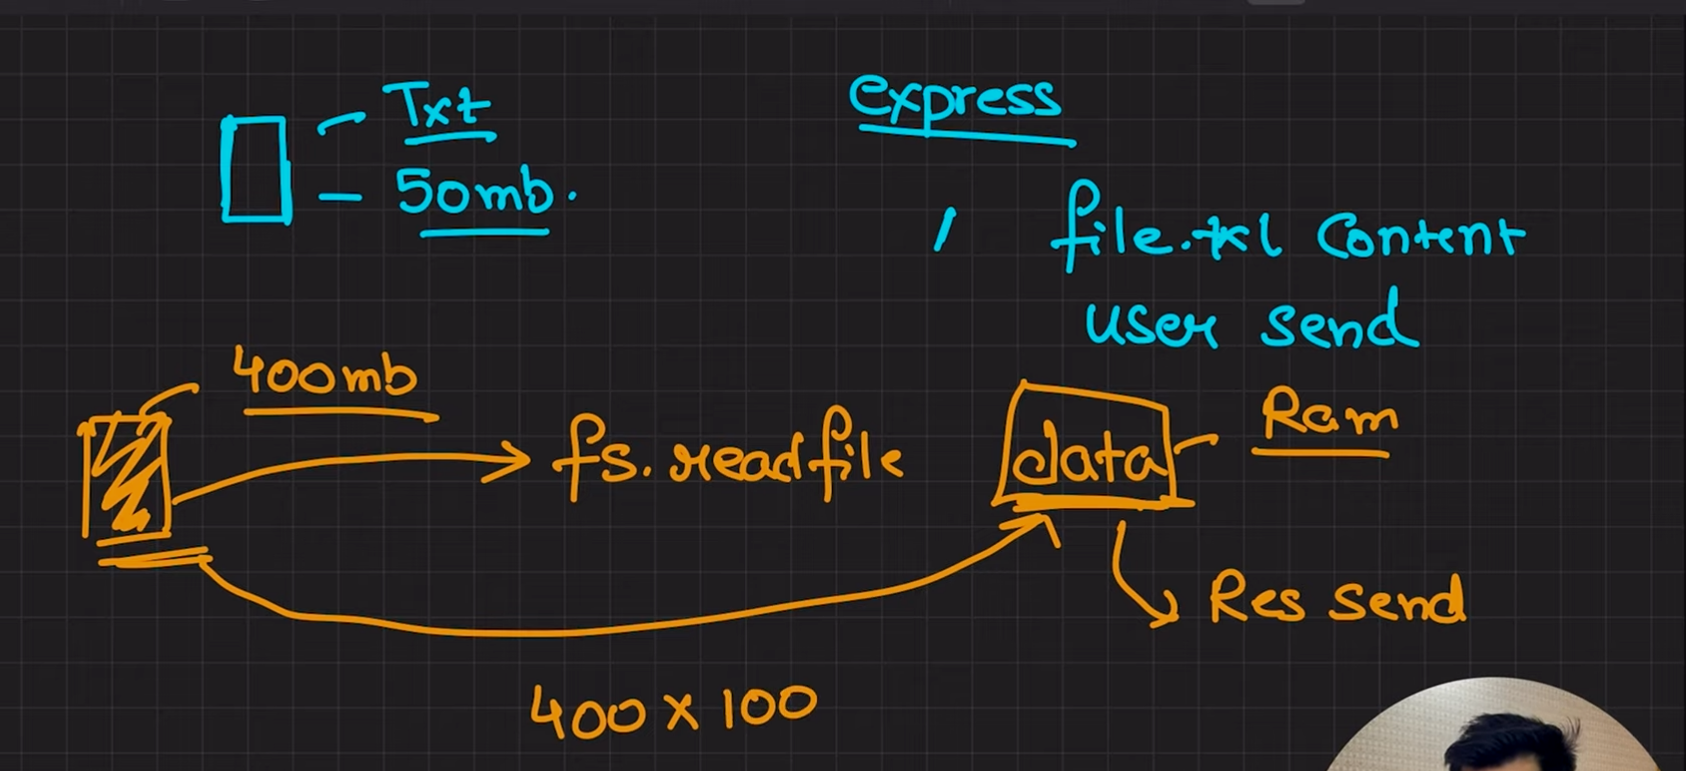 Txt
50mb.
express
/ file.txt Content
user send
400mb
fs.readfile
data
Ram
Res send
400 x 100